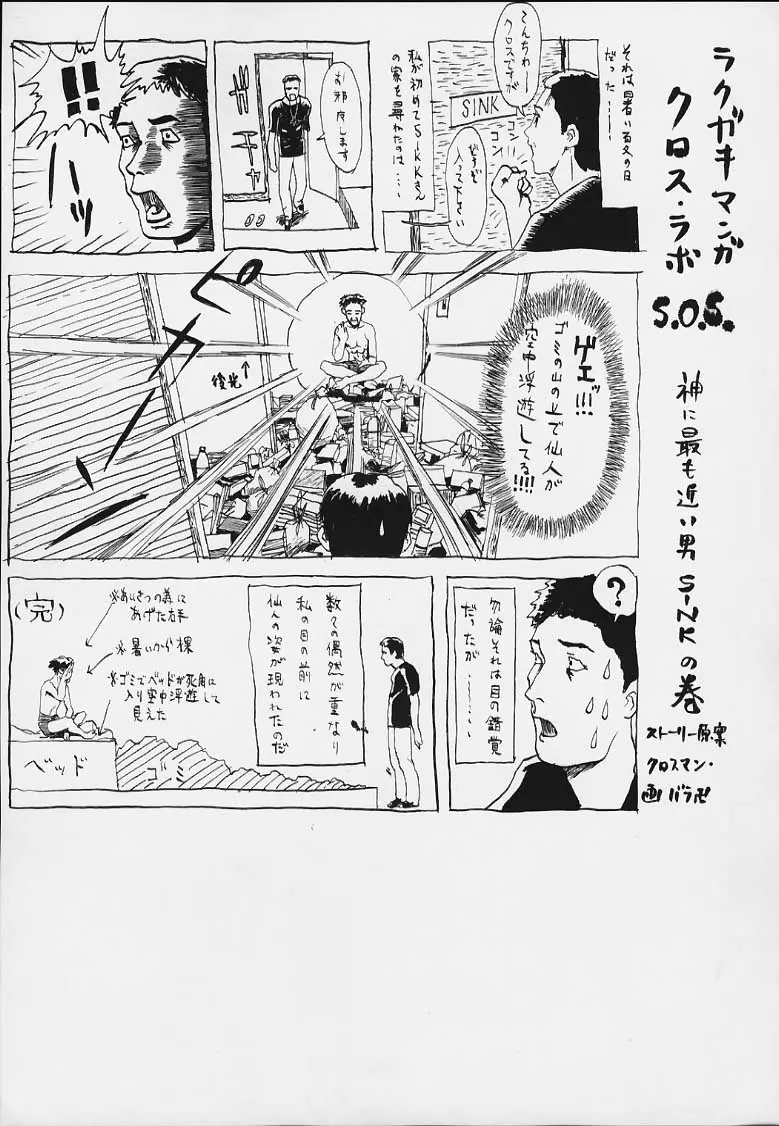 ラクガキマンガ
クロス・ラボ
S.O.S.
神に最も近い男SINKの巻
ストーリー原案
クロスマン・
画 バラ卍
それは暑い夏の日
だった……
こんちわー
クロスですが
SINK
コン
コン
どうぞ
入って下さい
私が初めてSiNKさん
の家を尋ねたのは…
お邪魔します
ガチャ
!!
ーッ
ゲエッ!!!
ゴミの山の上で仙人が
空中浮遊してる!!!!
ピカーッ
後光↑
?
勿論それは目の錯覚
だったが……
数々の偶然が重なり
私の目の前に
仙人の姿が現われたのだ
(完)
※あいさつの為に
あげた右手
※暑いから裸
※ゴミでベッドが死角に
入り空中浮遊して
見えた
ベッド
ゴミ